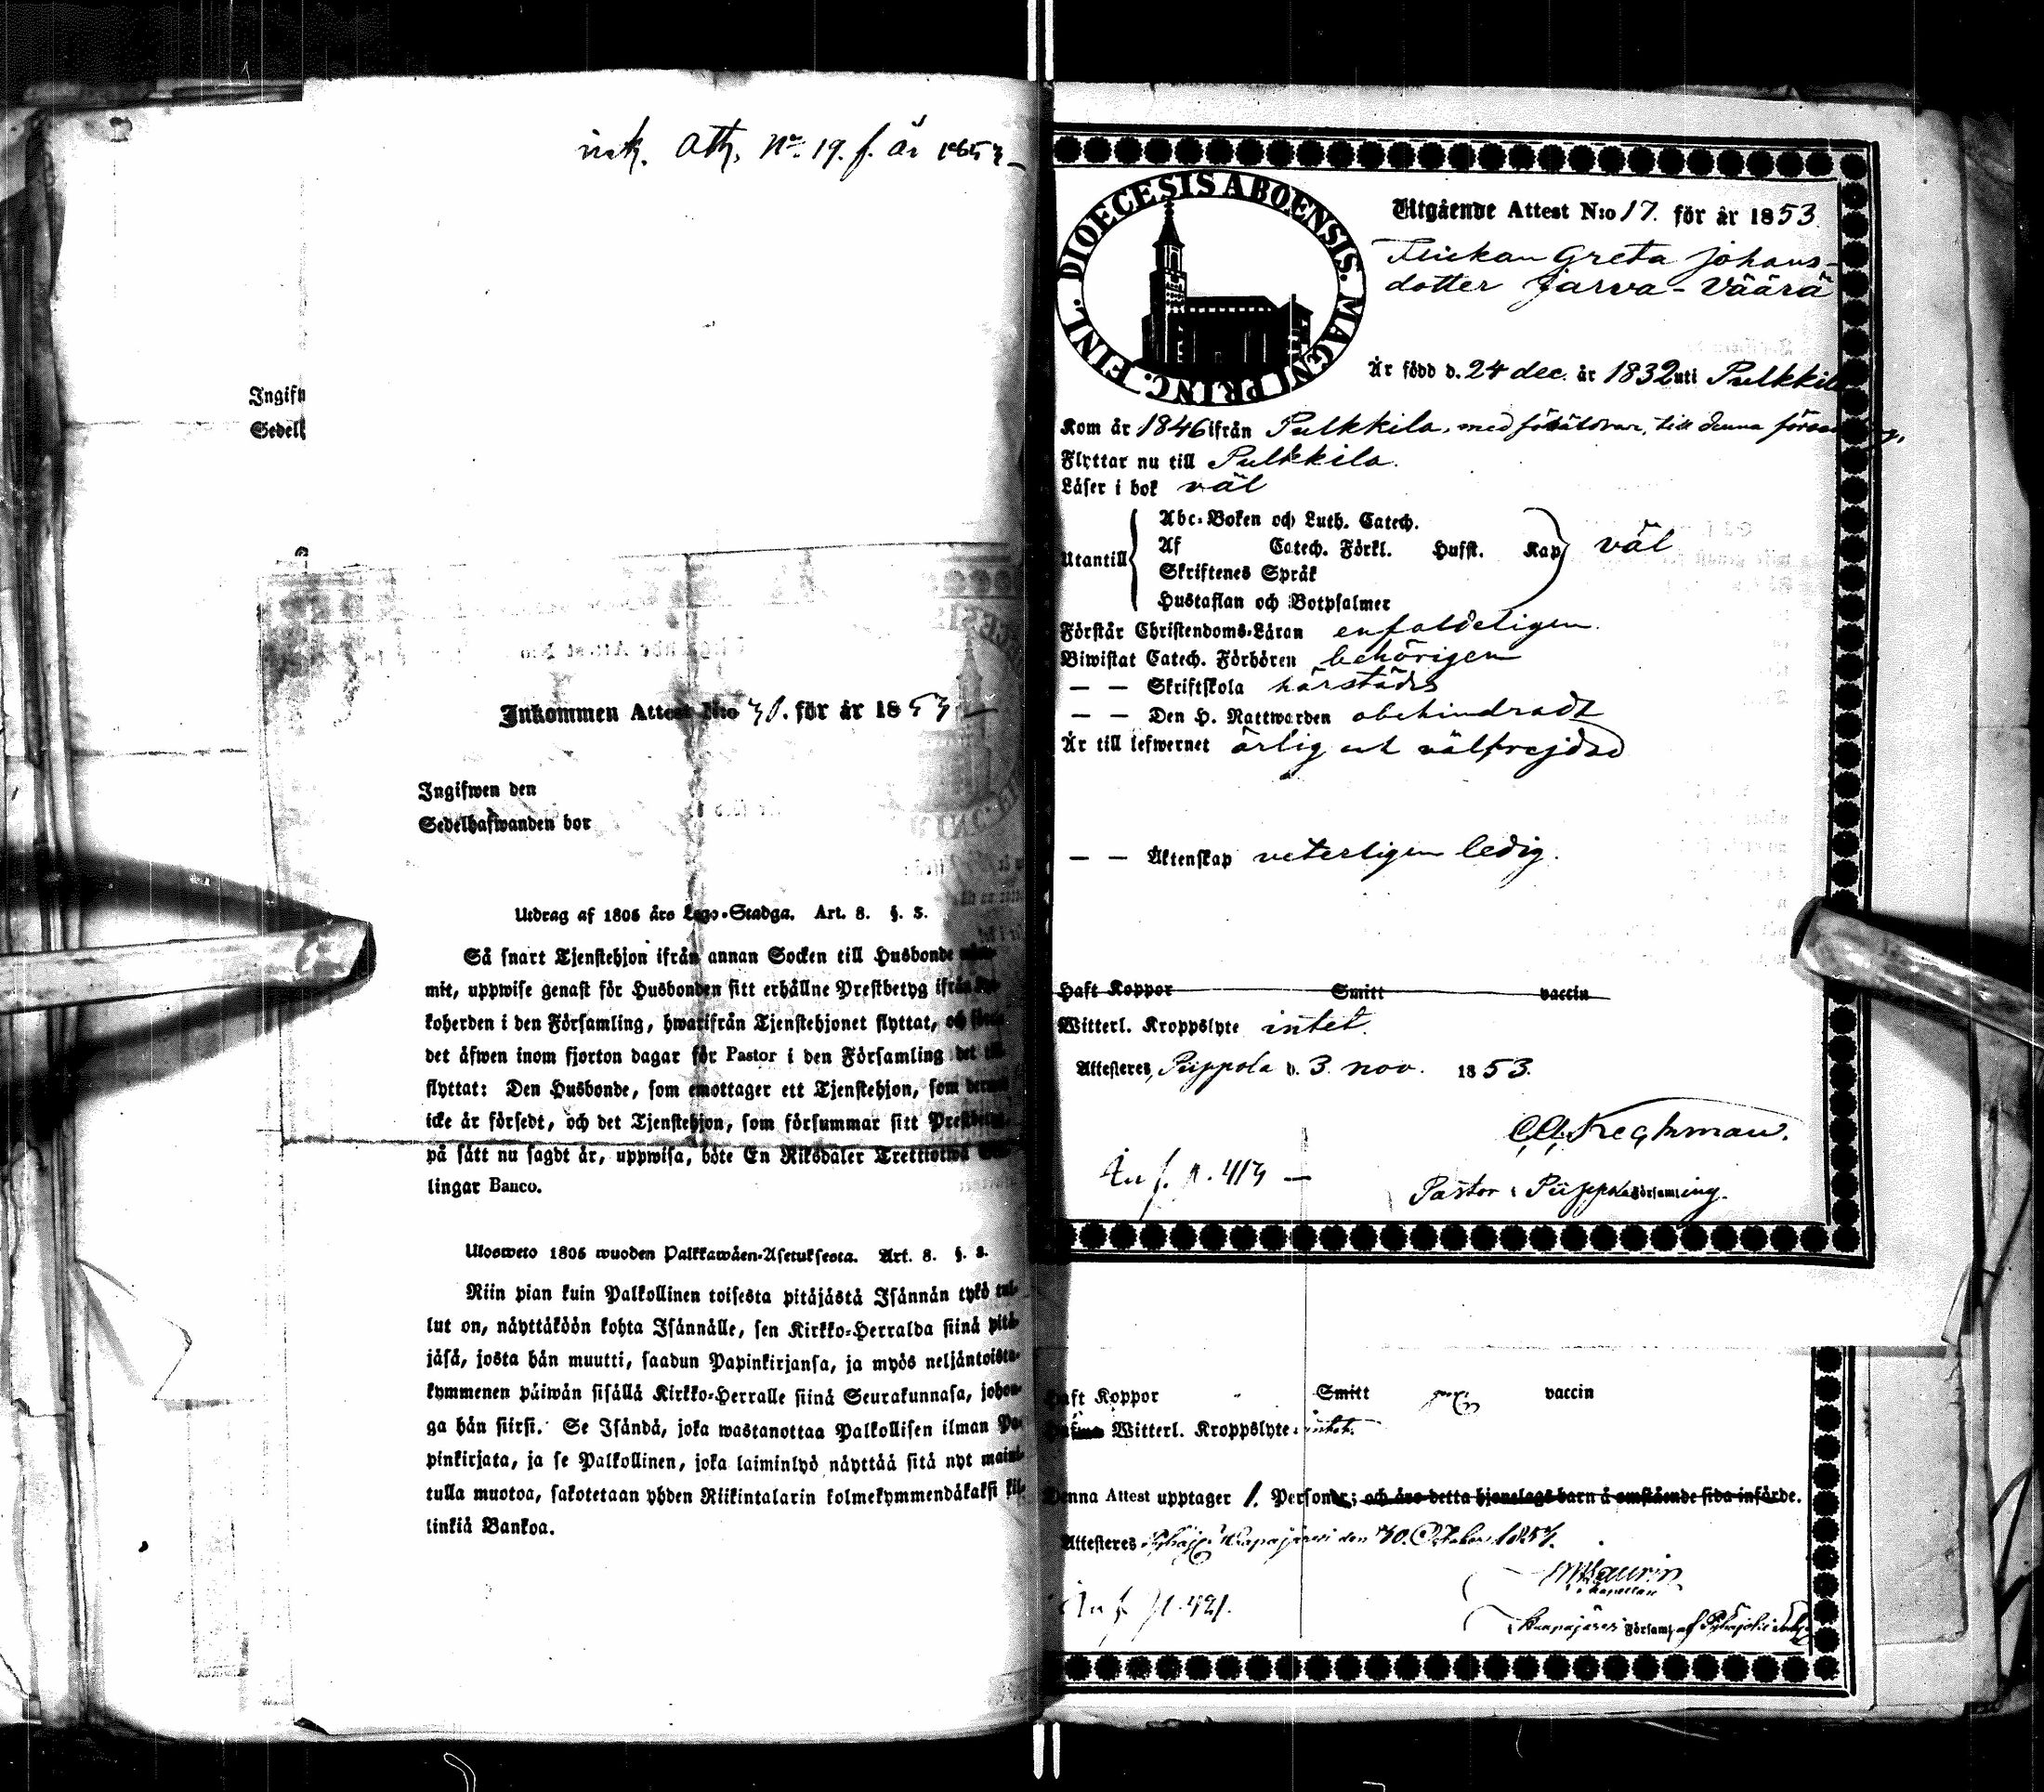 ink. att. No. 19. f. år 1853
Ingifw
Sedelh
Inkommen Attest N:o 31. för år 1853
Ingifwen den
Sedelhafwanden bor
Utdrag af 1805 års Lego-Stadga. Art. 8. §. 3.
Så snart Tjenstehjon ifrån annan Socken till Husbonde
mit, uppwise genast för Husbonden sitt erhållne Prestbetyg ifrån
koherden i den Församling, hwarifrån Tjenstehjonet flyttat, och
det äfwen inom fjorton dagar för Pastor i den Församling det till
flyttat: Den Husbonde, som emottager ett Tjenstehjon, som dermed
icke är försedt, och det Tjenstehjon, som försummar sitt Prestbetyg,
på sätt nu sagdt är, uppwisa, böte En Riksdaler Trettiotwå
lingar Banco.
Ulosweto 1805 wuoden Palkkawäen-Asetuksesta. Art. 8. §. 3.
Niin pian kuin Palkollinen toisesta pitäjästä Isännän tykö tul-
lut on, näyttäköön kohta Isännälle, sen Kirkko-Herralda siinä pitä-
jäsä, josta hän muutti, saadun Papinkirjansa, ja myös neljäntoista-
kymmenen päiwän sisällä Kirkko-Herralle siinä Seurakunnasa, johon-
ga hän siirsi. Se Isändä, joka wastanottaa Palkollisen ilman Pa-
pinkirjata, ja se Palkollinen, joka laiminlyö näyttää sitä nyt maini-
tulla muotoa, sakotetaan yhden Riikintalarin kolmekymmendäkaksi kil-
linkiä Bankoa.
DIOECESIS ABOENSIS. MAGNI PRINC. FINL.
Utgående Attest N:o 17. för år 1853.
Flickan Greta Johans-
dotter Jarva-Väärä
Är född d. 24 dec. år 1832 uti Pulkkila
Kom år 1846 ifrån Pulkkila, med föräldrar, till denna församling.
Flyttar nu till Pulkkila.
Läser i bok väl
Utantill Abc-Boken och Luth. Catech.
Af Catech. Förkl. Hufst. Kap väl
Skriftenes Språk
Hustaflan och Botpsalmer
Förstår Christendoms-Läran enfaldeligen.
Biwistat Catech. Förhören behörigen
— — Skriftskola härstädes
— — Den H. Nattwarden obehindradt
Är till lefwernet ärlig och välfrejdad
— — Äktenskap veterligen ledig.
Haft Koppor Smitt vaccin
Witterl. Kroppslyte intet.
Attesteres, Piippola d. 3. nov. 1853.
Pastor i Piippola Församling.
Inf. p. 413 —
Haft Koppor Smitt vaccin
Witterl. Kroppslyte intet.
Denna Attest upptager 1. Personer; och äro detta hjonelags barn å omstående sida införde.
Attesteres
Inf. p. 421.